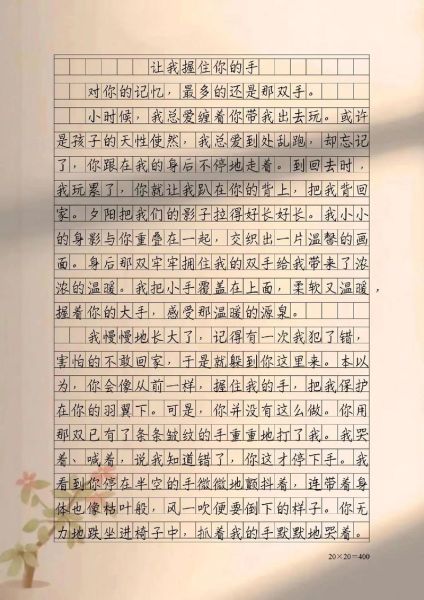 让我握住你的手
对你的记忆，最多的还是那双手。
小时候，我总爱缠着你带我出去玩。或许
是孩子的天性使然，我总爱到处乱跑，却忘记
了，你跟在我的身后不停地走着。到回去时，
我玩累了，你就让我趴在你的背上，把我背回
家。夕阳把我们的影子拉得好长好长。我小小
的身影与你重叠在一起，交织出一片温馨的画
面。身后那双牢牢拥住我的双手给我带来了浓
浓的温暖。我把小手覆盖在上面，柔软又温暖，
握着你的大手，感受那温暖的源泉。
我慢慢地长大了，记得有一次我犯了错，
害怕的不敢回家，于是就躲到你这里来。本以
为，你会像从前一样，握住我的手，把我保护
在你的羽翼下。可是，你并没有这么做。你用
那双已有了条条皱纹的手重重地打了我。我哭
着、喊着，说我知道错了，你这才停下手。我
看到你停在半空的手微微地颤抖着，连带着身
体也像枯叶般，风一吹便要倒下的样子。你无
力地跌坐进椅子中，抓着我的手默默地哭着。
20×20=400